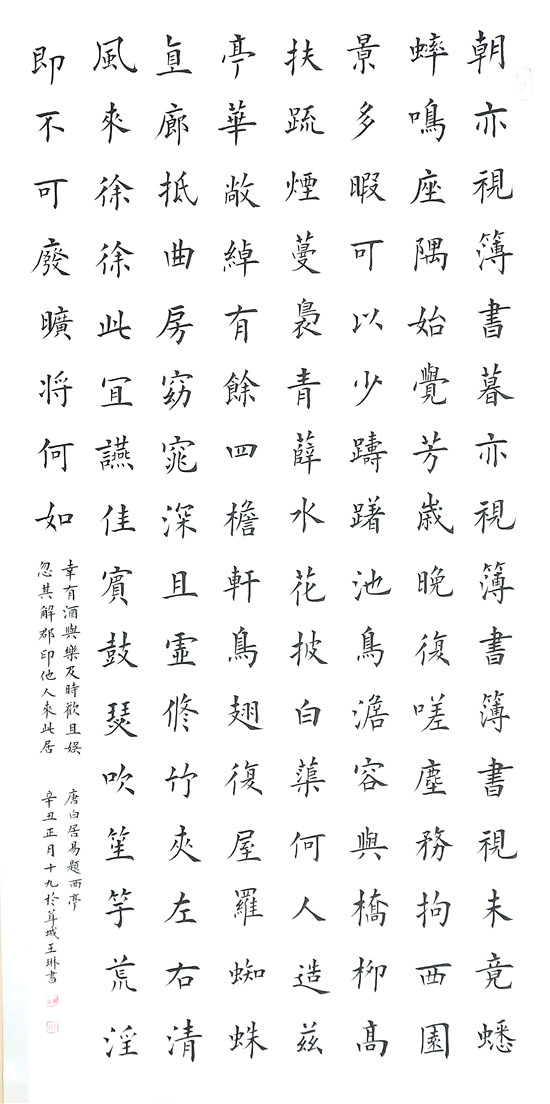 朝亦視簿書暮亦視簿書簿書視未竟蟋
蟀鳴座隅始覺芳歲晚復嗟塵務拘西園
景多暇可以少躊躇池鳥澹容與橋柳高
扶疏煙蔓裊青薜水花披白蕖何人造茲
亭華敞綽有餘四檐軒鳥翅復屋羅蜘蛛
直廊抵曲房窈窕深且虛修竹夾左右清
風來徐徐此宜讌佳賓鼓瑟吹笙竽荒淫
即不可廢曠将何如
幸有酒與樂及時歡且娱
忽其解郡印他人來此居
唐白居易題西亭
辛丑正月十九於茸城王琳書